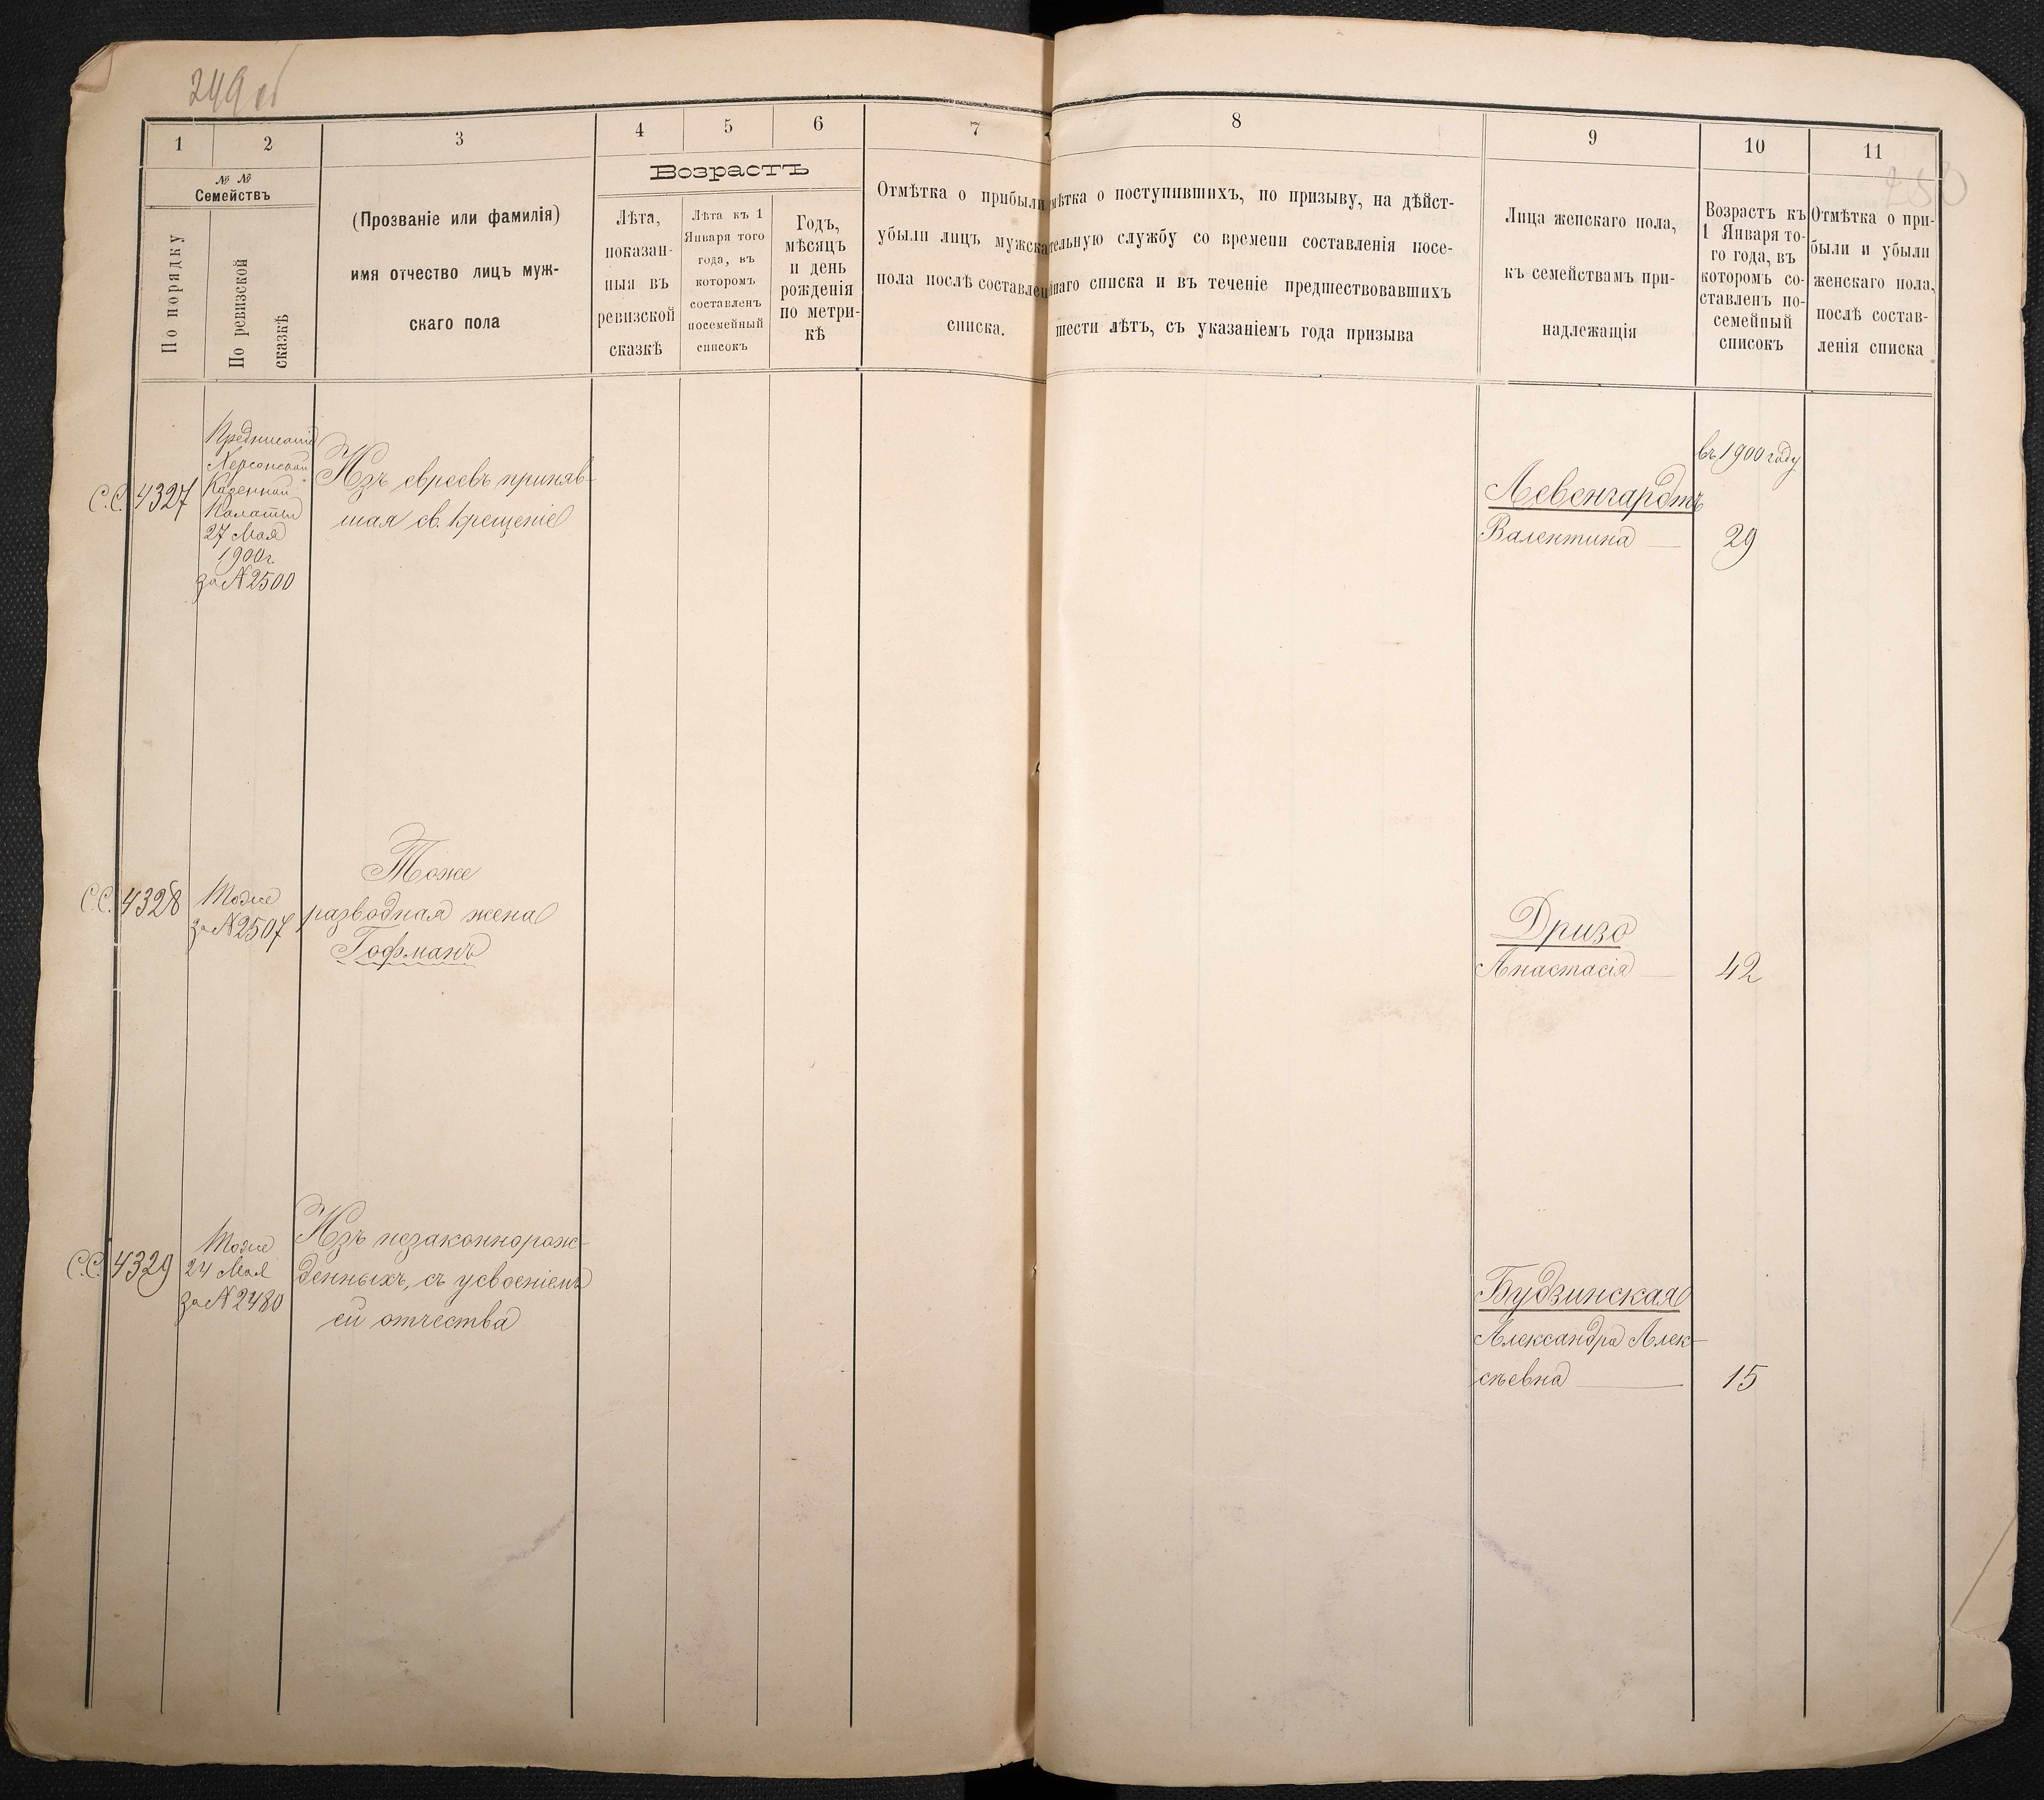 249 об
250
1
2
3
4
5
6
7
8
9
10
11
№ №
Семействъ
По порядку
По ревизской
сказкѣ
(Прозваніе или фамилія)
имя отчество лицъ муж-
скаго пола
Возрастъ
Лѣта,
показан-
ныя въ
ревизской
сказкѣ
Лѣта къ 1
Января того
года, въ
которомъ
составленъ
посемейный
списокъ
Годъ,
мѣсяцъ
и день
рожденія
по метри-
кѣ
Отмѣтка о прибыли
убыли лицъ мужска
пола послѣ составлен
списка.
мѣтка о поступившихъ, по призыву, на дѣйст-
тельную службу со времени составленія посе-
йнаго списка и въ теченіе предшествовавшихъ
шести лѣтъ, съ указаніемъ года призыва
Лица женскаго пола,
къ семействамъ при-
надлежащія
Возрастъ къ
1 Января то-
го года, въ
которомъ со-
ставленъ по-
семейный
списокъ
Отмѣтка о при-
были и убыли
женскаго пола,
послѣ состав-
ленія списка
С.С. 4327
Предписаніе
Херсонской
Казенной
Палаты
27 Мая
1900 г.
за № 2500
Изъ евреевъ приняв-
шая св. Крещеніе
въ 1900 году
Левенгардтъ
Валентина
29
С.С. 4328
Тоже
за № 2507
Тоже
разводная жена
Гофманъ
Дризо
Анастасія
42
С.С. 4329
Тоже
24 Мая
за № 2480
Изъ незаконнорож-
денныхъ, съ усвоеніемъ
ей отчества
Будзинская
Александра Алек-
сѣевна
15